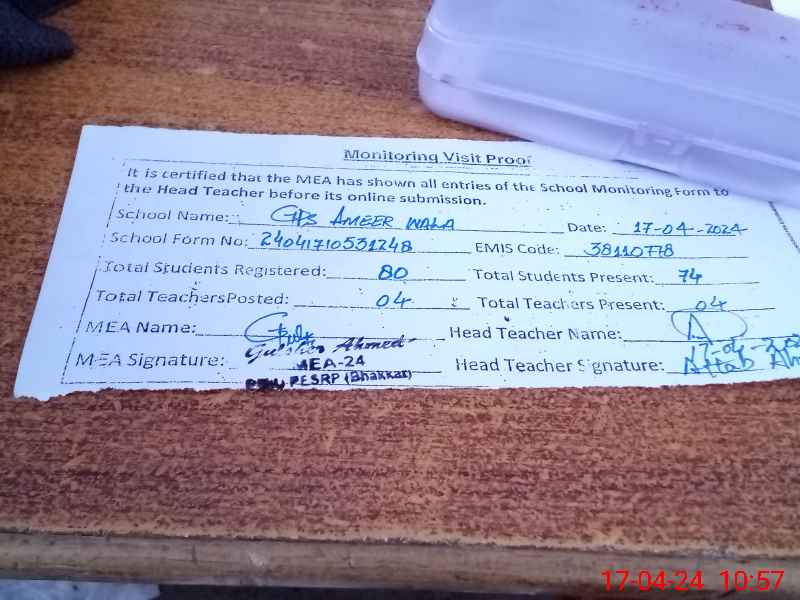 Monitoring Visit Proof
It is certified that the MEA has shown all entries of the School Monitoring Form to
the Head Teacher before its online submission.
School Name: GPS AMEER WALA Date: 17-04-2024
School Form No: 24041710531248 EMIS Code: 38110778
Total Students Registered: 80 Total Students Present: 74
Total TeachersPosted: 04 Total Teachers Present: 04
MEA Name: Head Teacher Name:
MEA Signature: Ahmed Head Teacher Signature: Aftab
MEA-24
PESRP (Bhakkar)
17-04-24 10:57